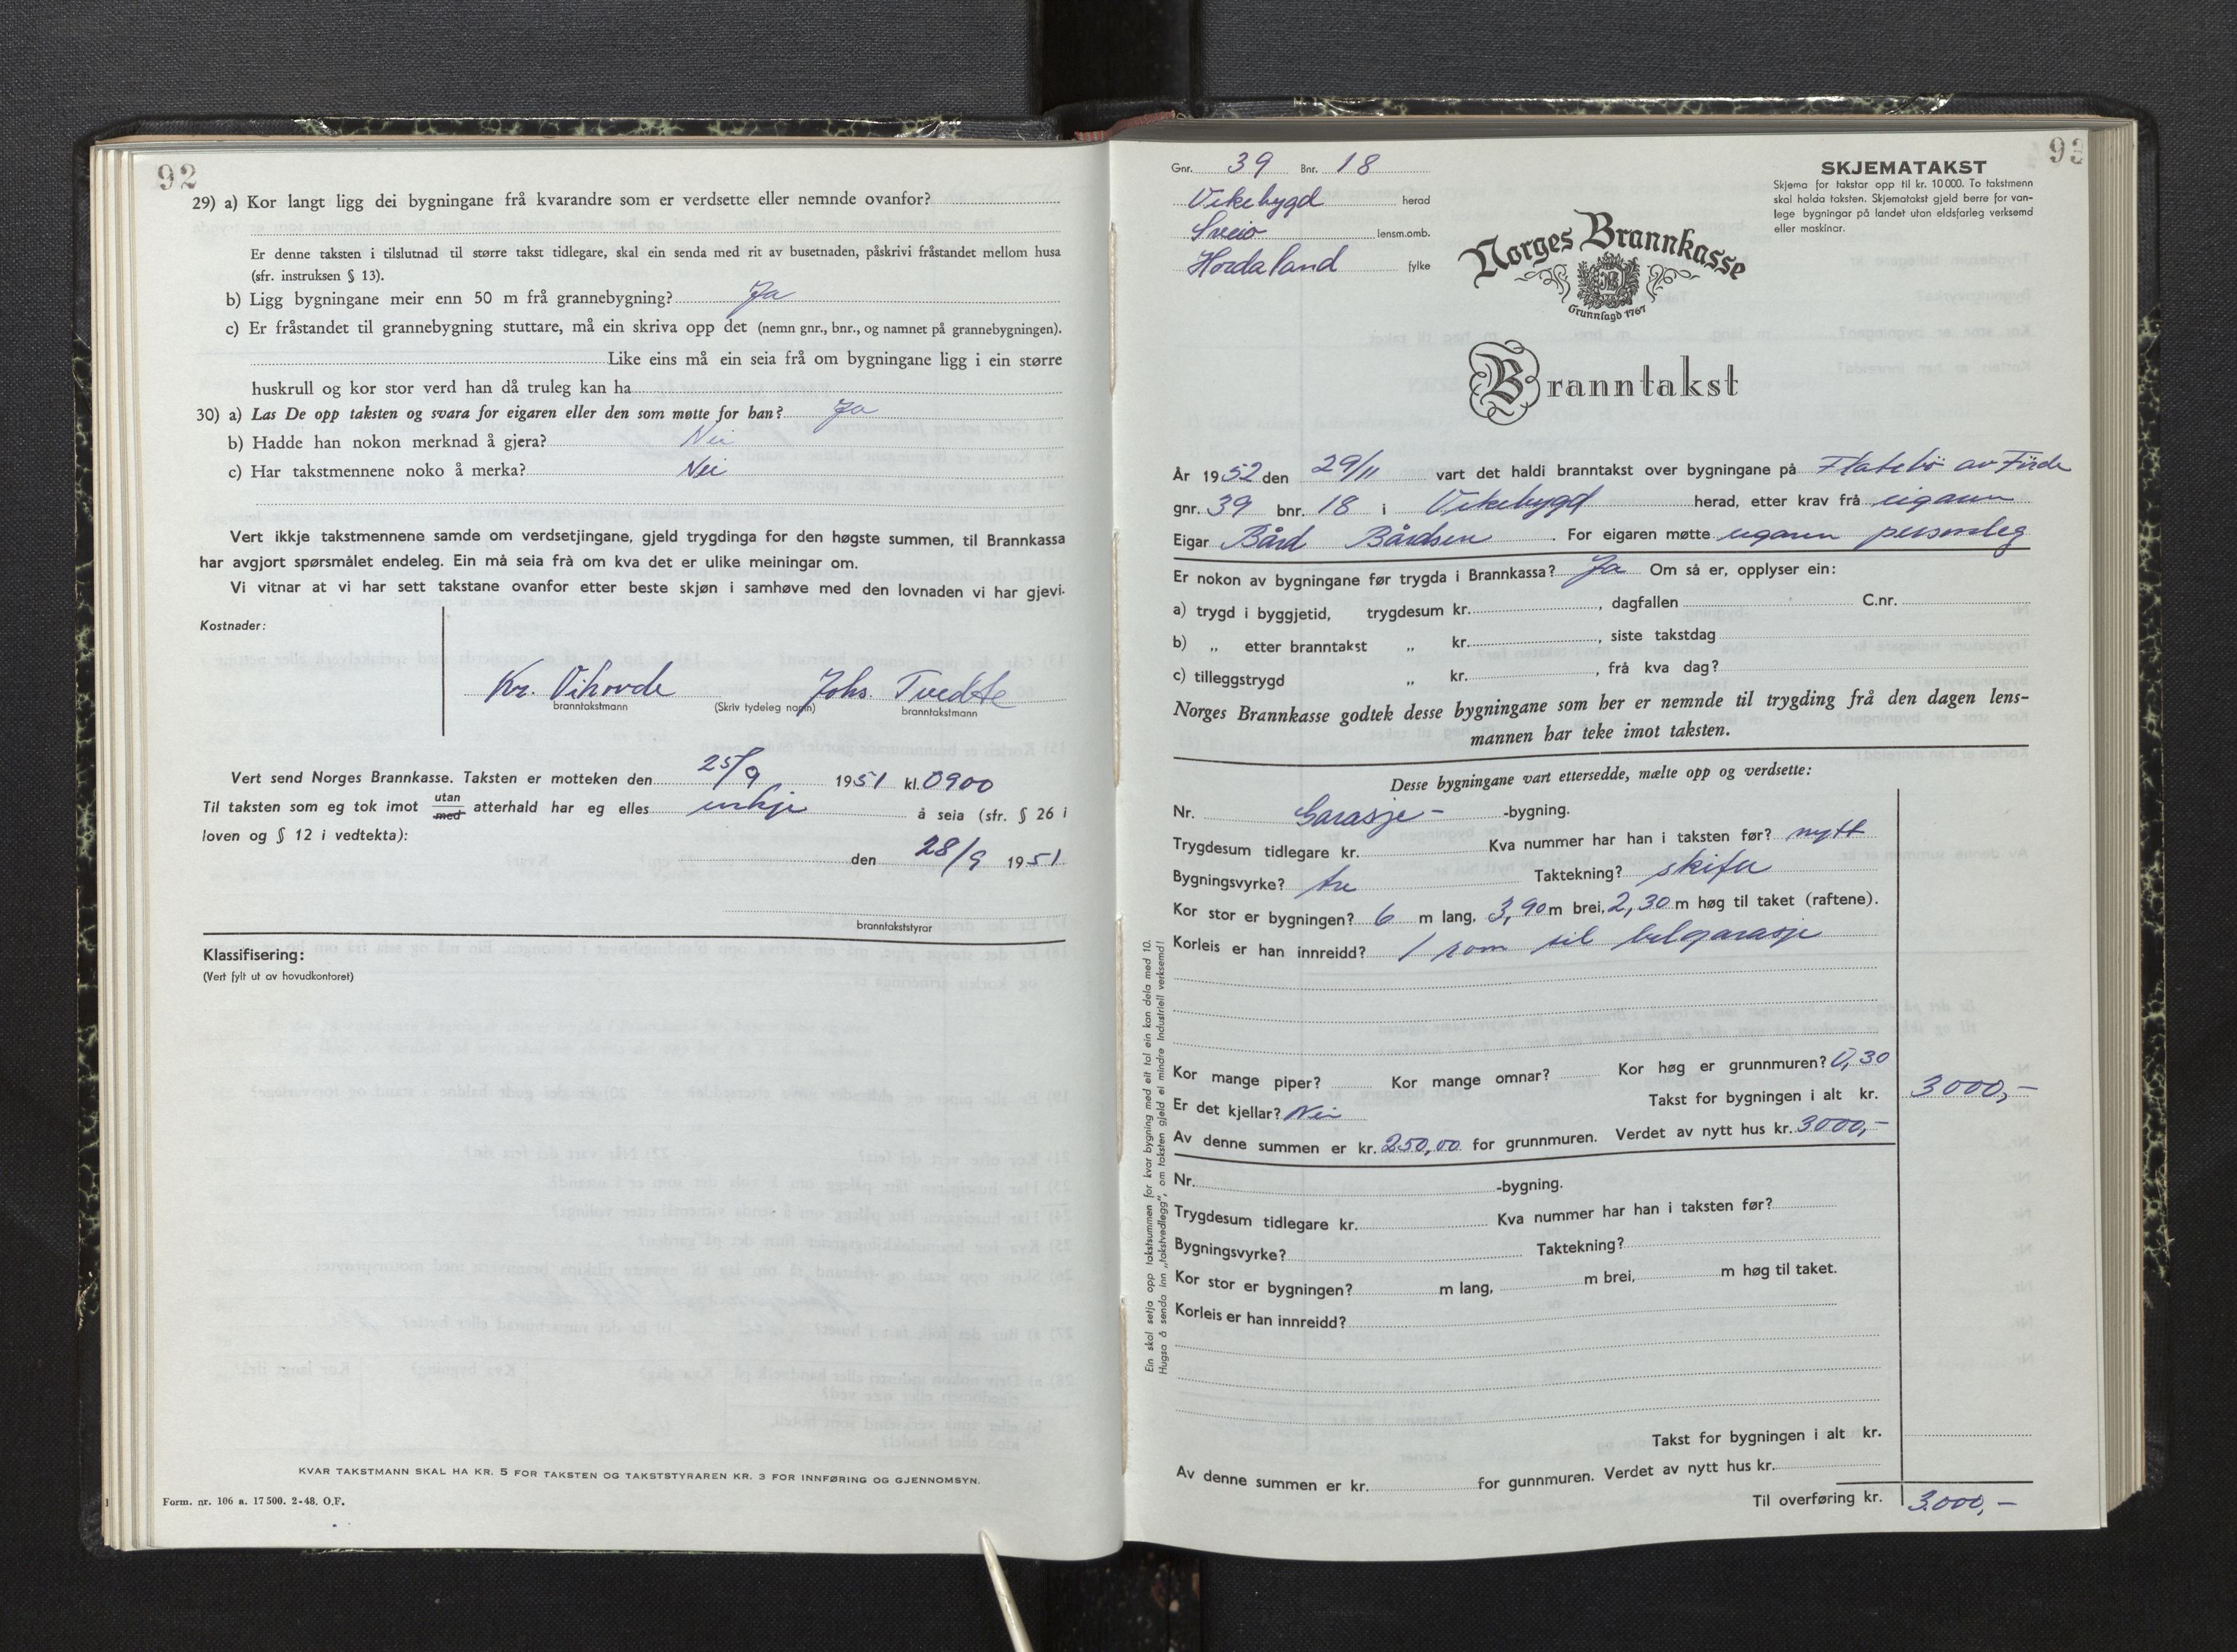 92
29) a) Kor langt ligg dei bygningane frå kvarandre som er verdsette eller nemnde ovanfor?
Er denne taksten i tilslutnad til større takst tidlegare, skal ein senda med rit av busetnaden, påskrivi fråstandet mellom husa
(sfr. instruksen § 13).
b) Ligg bygningane meir enn 50 m frå grannebygning? Ja
c) Er fråstandet til grannebygning stuttare, må ein skriva opp det (nemn gnr., bnr., og namnet på grannebygningen).
Like eins må ein seia frå om bygningane ligg i ein større
huskrull og kor stor verd han då truleg kan ha
30) a) Las De opp taksten og svara for eigaren eller den som møtte for han? Ja
b) Hadde han nokon merknad å gjera? Nei
c) Har takstmennene noko å merka? Nei
Vert ikkje takstmennene samde om verdsetjingane, gjeld trygdinga for den høgste summen, til Brannkassa
har avgjort spørsmålet endeleg. Ein må seia frà om kva det er ulike meiningar om.
Vi vitnar at vi har sett takstane ovanfor etter beste skjøn i samhøve med den lovnaden vi har gjevi.
Kostnader:
Kr. Vihovde Johs. Tvedte
branntakstmann (Skriv tydeleg namn) branntakstmann
Vert send Norges Brannkasse. Taksten er motteken den 25/9 1951 kl. 0900
Til taksten som eg tok imot utan med atterhald har eg elles inkje å seia (sfr. § 26 i
loven og § 12 i vedtekta):
den 28/9 1951
branntakststyrar
Klassifisering:
(Vert fylt ut av hovudkontoret)
KVAR TAKSTMANN SKAL HA KR. 5 FOR TAKSTEN OG TAKSTSTYRAREN KR. 3 FOR INNFØRING OG GJENNOMSYN.
Form. nr. 106 a. 17 500. 2-48. O.F.
93
Gnr. 39 Bnr. 18
Vikebygd herad
Sveio lensm.omb.
Hordaland fylke
SKJEMATAKST
Skjema for takstar opp til kr. 10 000. To takstmenn
skal halda taksten. Skjematakst gjeld berre for van-
lege bygningar på landet utan eldsfarleg verksemd
eller maskinar.
Norges Brannkasse
Grunnlagd 1767
Branntakst
År 1952 den 29/11 vart det haldi branntakst over bygningane på Flatebö av Förde
gnr. 39 bnr. 18 i Vikebygd herad, etter krav frå eigaren
Eigar Bård Bårdsen . For eigaren møtte eigaren personleg
Er nokon av bygningane før trygda i Brannkassa? Ja Om så er, opplyser ein:
a) trygd i byggjetid, trygdesum kr. , dagfallen C.nr.
b) „ etter branntakst „ kr. , siste takstdag
c) tilleggstrygd „ kr. , frå kva dag?
Norges Brannkasse godtek desse bygningane som her er nemnde til trygding frå den dagen lens-
mannen har teke imot taksten.
Desse bygningane vart ettersedde, mælte opp og verdsette:
Nr. Garasje- -bygning.
Trygdesum tidlegare kr. Kva nummer har han i taksten før? nytt
Bygningsvyrke? tre Taktekning? skifer
Kor stor er bygningen? 6 m lang, 3,90 m brei, 2,30 m høg til taket (raftene).
Korleis er han innreidd? 1 rom til bilgarasje
Kor mange piper? Kor mange omnar? Kor høg er grunnmuren? 0,30
Er det kjellar? Nei Takst for bygningen i alt kr. 3000,-
Av denne summen er kr. 250,00 for grunnmuren. Verdet av nytt hus kr. 3000,-
Nr. -bygning.
Trygdesum tidlegare kr. Kva nummer har han i taksten før?
Bygningsvyrke? Taktekning?
Kor stor er bygningen? m lang, m brei, m høg til taket.
Korleis er han innreidd?
Takst for bygningen i alt kr.
Av denne summen er kr. for gunnmuren. Verdet av nytt hus kr.
Til overføring kr. 3.000,-
Ein skal setja opp takstsummen for kvar bygning med eit tal ein kan dela med 10.
Hugsa å senda inn „takstvedlegg", om taksten gjeld ei mindre industriell verksemd!